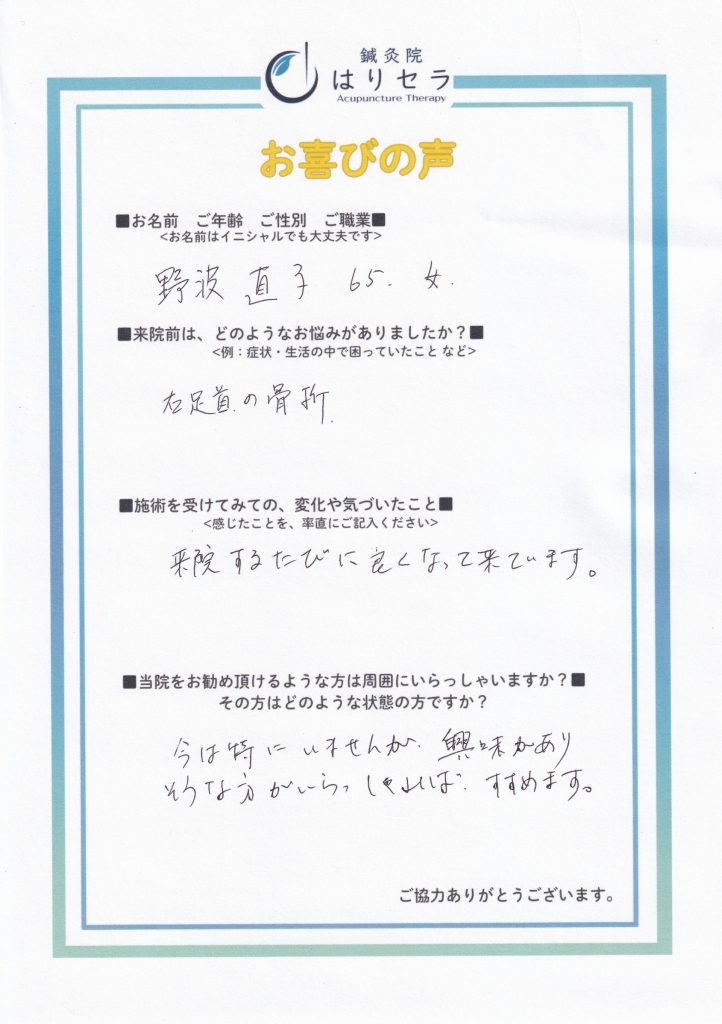 鍼灸院
はりセラ
Acupuncture Therapy
お喜びの声
■お名前 ご年齢 ご性別 ご職業■
<お名前はイニシャルでも大丈夫です>
野波 直子 65. 女.
■来院前は、どのようなお悩みがありましたか？■
<例：症状・生活の中で困っていたこと など>
右足首の骨折
■施術を受けてみての、変化や気づいたこと■
<感じたことを、率直にご記入ください>
来院するたびに良くなって来ています。
■当院をお勧め頂けるような方は周囲にいらっしゃいますか？■
その方はどのような状態の方ですか？
今は特にいませんが、興味があり
そうな方がいらっしゃれば、すすめます。
ご協力ありがとうございます。